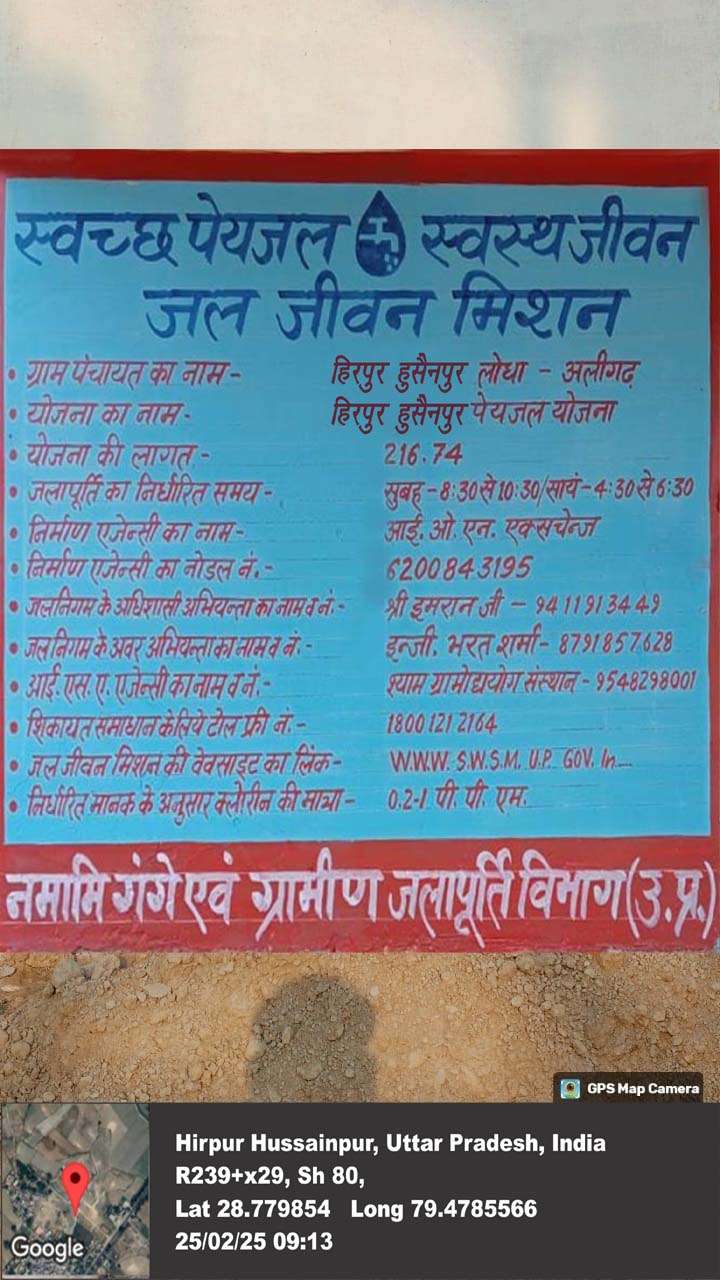 स्वच्छ पेयजल स्वस्थ जीवन
जल जीवन मिशन
• ग्राम पंचायत का नाम - हिरपुर हुसैनपुर लोधा - अलीगढ़
• योजना का नाम - हिरपुर हुसैनपुर पेयजल योजना
• योजना की लागत - 216.74
• जलापूर्ति का निर्धारित समय - सुबह - 8:30 से 10:30/सायं - 4:30 से 6:30
• निर्माण एजेन्सी का नाम - आई. ओ. एन. एक्सचेन्ज
• निर्माण एजेन्सी का नोडल नं. - 6200843195
• जलनिगम के अधिशासी अभियन्ता का नाम व नं. - श्री इमरान जी - 9411913449
• जलनिगम के अवर अभियन्ता का नाम व नं. - इन्जी. भरत शर्मा - 8791857628
• आई. एस. ए. एजेन्सी का नाम व नं. - श्याम ग्रामोद्ययोग संस्थान - 9548298001
• शिकायत समाधान के लिये टोल फ्री नं. - 1800 121 2164
• जल जीवन मिशन की वेवसाइट का लिंक - W.W.W. S.W.S.M. U.P. GOV. In....
• निर्धारित मानक के अनुसार क्लोरीन की मात्रा - 0.2-1 पी. पी. एम.
नमामि गंगे एवं ग्रामीण जलापूर्ति विभाग (उ.प्र.)
GPS Map Camera
Hirpur Hussainpur, Uttar Pradesh, India
R239+x29, Sh 80,
Lat 28.779854 Long 79.4785566
25/02/25 09:13
Google